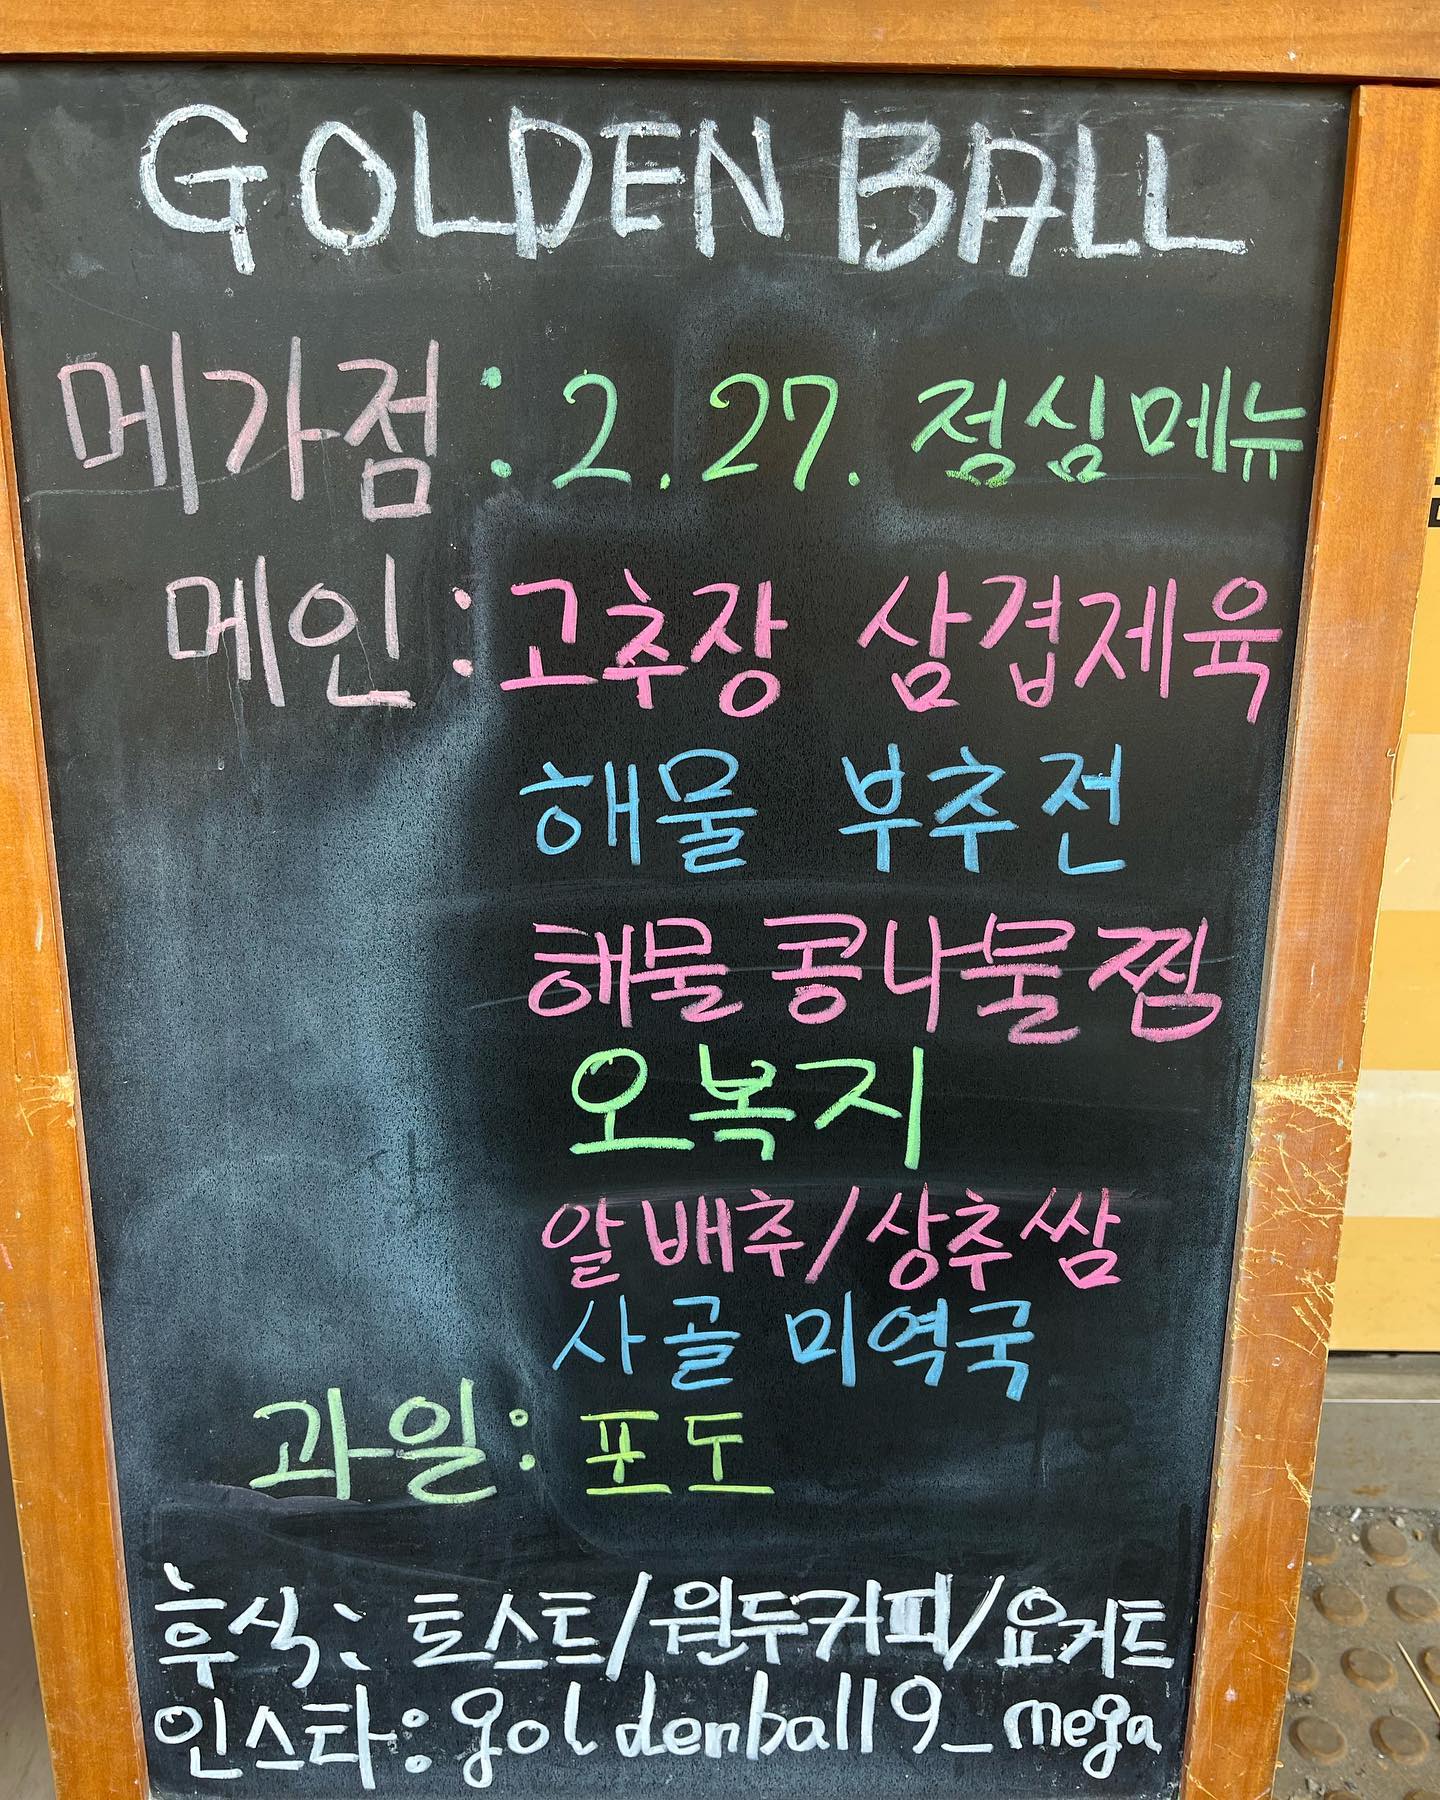 GOLDEN BALL
메가점 : 2.27. 정심메뉴
메인 : 고추장 삼겹제육
해물 부추전
해물 콩나물찜
오복지
알배추/상추쌈
사골 미역국
과일 : 포도
후식 : 토스트/원두커피/요거트
인스타 : goldenball19_mega